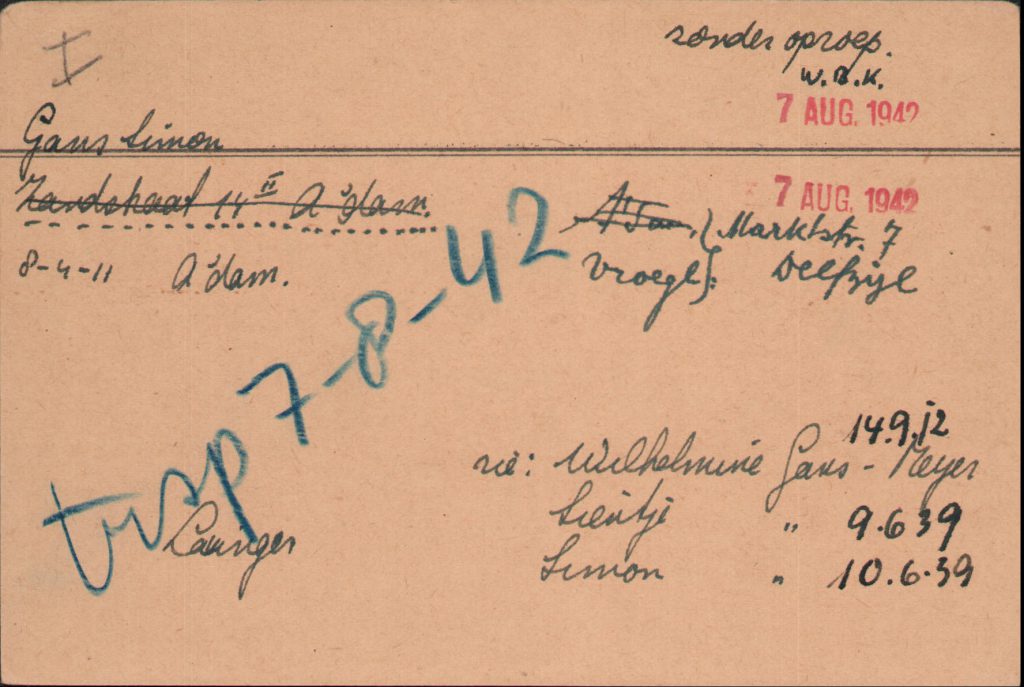 I
zonder oproep.
W.B.K.
7 AUG. 1942
Gans Simon
7 AUG. 1942
Zandstraat 14 II A'dam.
Marktstr. 7
8-4-11 A'dam.
Vroegl: Delfzijl
trsp 7-8-42
14.9.12
zie: Wilhelmine Gans-Meyer
Sientje " 9.6 39
Simon " 10.6.39